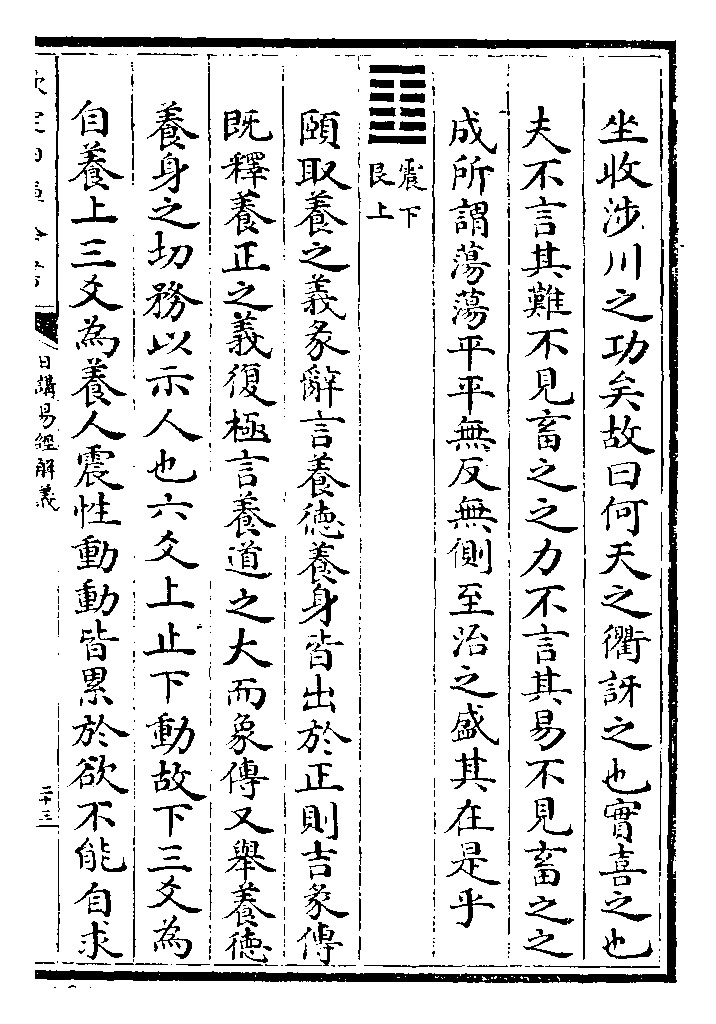 坐收涉川之功矣故曰何天之衢訝之也實喜之也
夫不言其難不見畜之之力不言其易不見畜之之
成所謂蕩蕩平平無反無側至治之盛其在是乎
震下
艮上
頤取養之義彖辭言養徳養身皆出於正則吉彖傳
既釋養正之義復極言養道之大而象傳又舉養徳
養身之切務以示人也六爻上止下動故下三爻為
自養上三爻為養人震性動動皆累於欲不能自求
日講易經解義
二十三